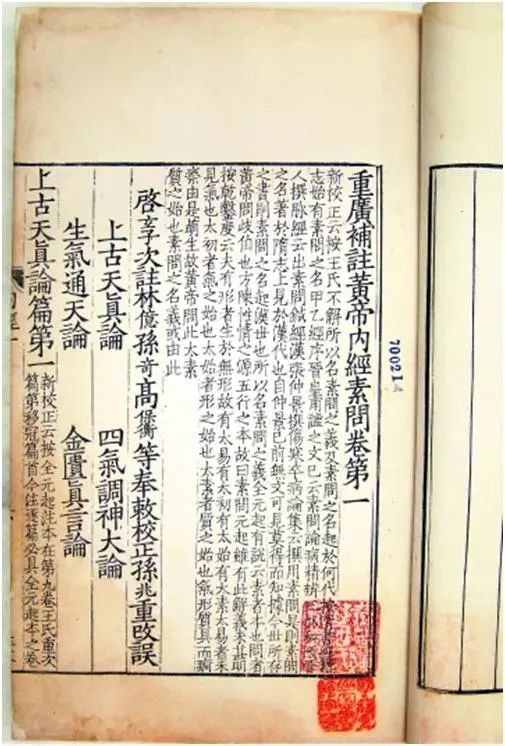 重廣補註黃帝內經素問卷第一
新校正云按王氏不解所以名素問之義及素問之名起於何代按隋書經籍
志始有素問之名甲乙經序晉皇甫謐之文已云素問論病精辨王叔和西晉
人撰脉經云出素問鍼經漢張仲景撰傷寒卒病論集云撰用素問是則素問
之名著於隋志上見於漢代也自仲景已前無文可見莫得而知據今世所存
之書則素問之名起漢世也所以名素問之義全元起有說云素者本也問者
黃帝問歧伯也方陳性情之源五行之本故曰素問元起雖有此解義未甚明
按乾鑿度云夫有形者生於無形故有太易有太初有太始有太素太易者未
見氣也太初者氣之始也太始者形之始也太素者質之始也氣形質具而痾
瘵由是萌生故黃帝問此太素
質之始也素問之名義或由此
啓玄子次註林億孫奇高保衡等奉敕校正孫兆重改誤
上古天真論 四氣調神大論
生氣通天論 金匱真言論
上古天真論篇第一
新校正云按全元起注本在第九卷王氏重次
篇第移冠篇首今注逐篇必具全元起本之卷
700214